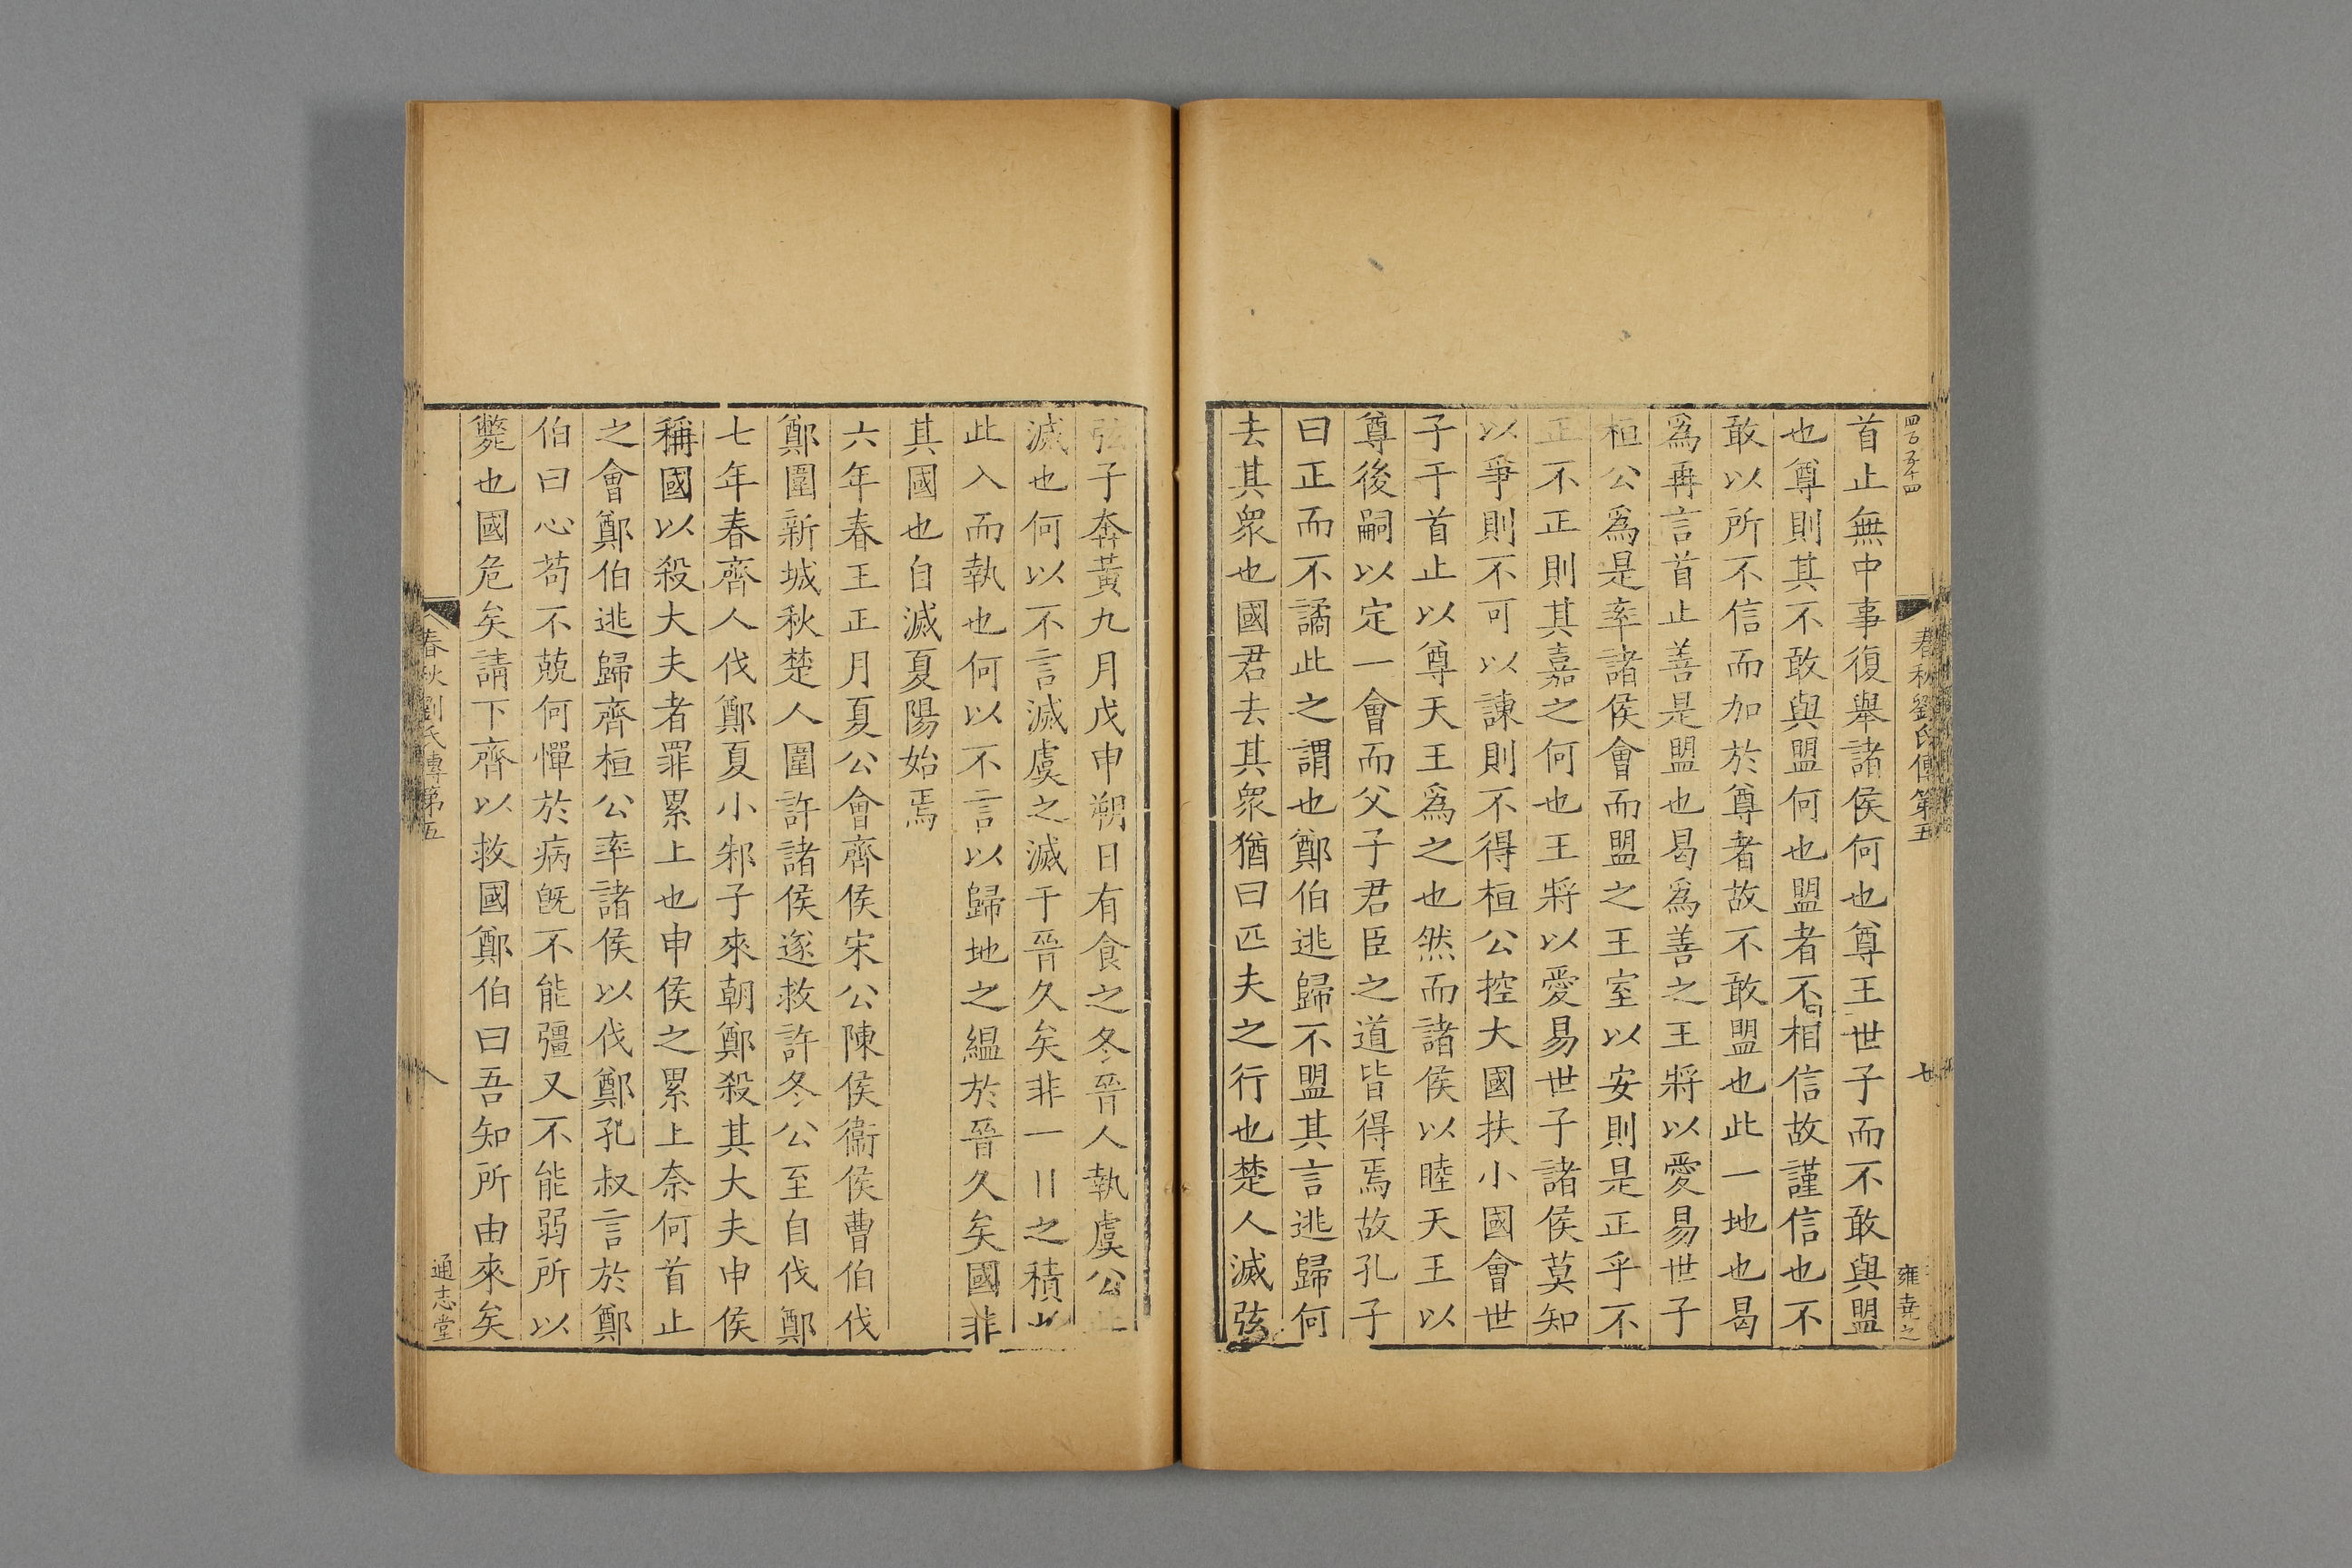 四百五十四
春秋劉氏傳第五
世
雍堯之
首止無中事復舉諸侯何也尊王世子而不敢與盟
也尊則其不敢與盟何也盟者不相信故謹信也不
敢以所不信而加於尊者故不敢盟也此一地也曷
爲再言首止善是盟也曷爲善之王將以愛易世子
桓公爲是率諸侯會而盟之王室以安則是正乎不
正不正則其嘉之何也王將以愛易世子諸侯莫知
以爭則不可以諫則不得桓公控大國扶小國會世
子于首止以尊天王爲之也然而諸侯以睦天王以
尊後嗣以定一會而父子君臣之道皆得焉故孔子
曰正而不譎此之謂也鄭伯逃歸不盟其言逃歸何
去其衆也國君去其衆猶曰匹夫之行也楚人滅弦
弦子奔黃九月戊申朔日有食之冬晉人執虞公此
滅也何以不言滅虞之滅于晉久矣非一日之積也
此入而執也何以不言以歸地之縕於晉久矣國非
其國也自滅夏陽始焉
六年春王正月夏公會齊侯宋公陳侯衞侯曹伯伐
鄭圍新城秋楚人圍許諸侯遂救許冬公至自伐鄭
七年春齊人伐鄭夏小邾子來朝鄭殺其大夫申侯
稱國以殺大夫者罪累上也申侯之累上奈何首止
之會鄭伯逃歸齊桓公率諸侯以伐鄭孔叔言於鄭
伯曰心苟不兢何憚於病旣不能彊又不能弱所以
斃也國危矣請下齊以救國鄭伯曰吾知所由來矣
春秋劉氏傳第五
通志堂